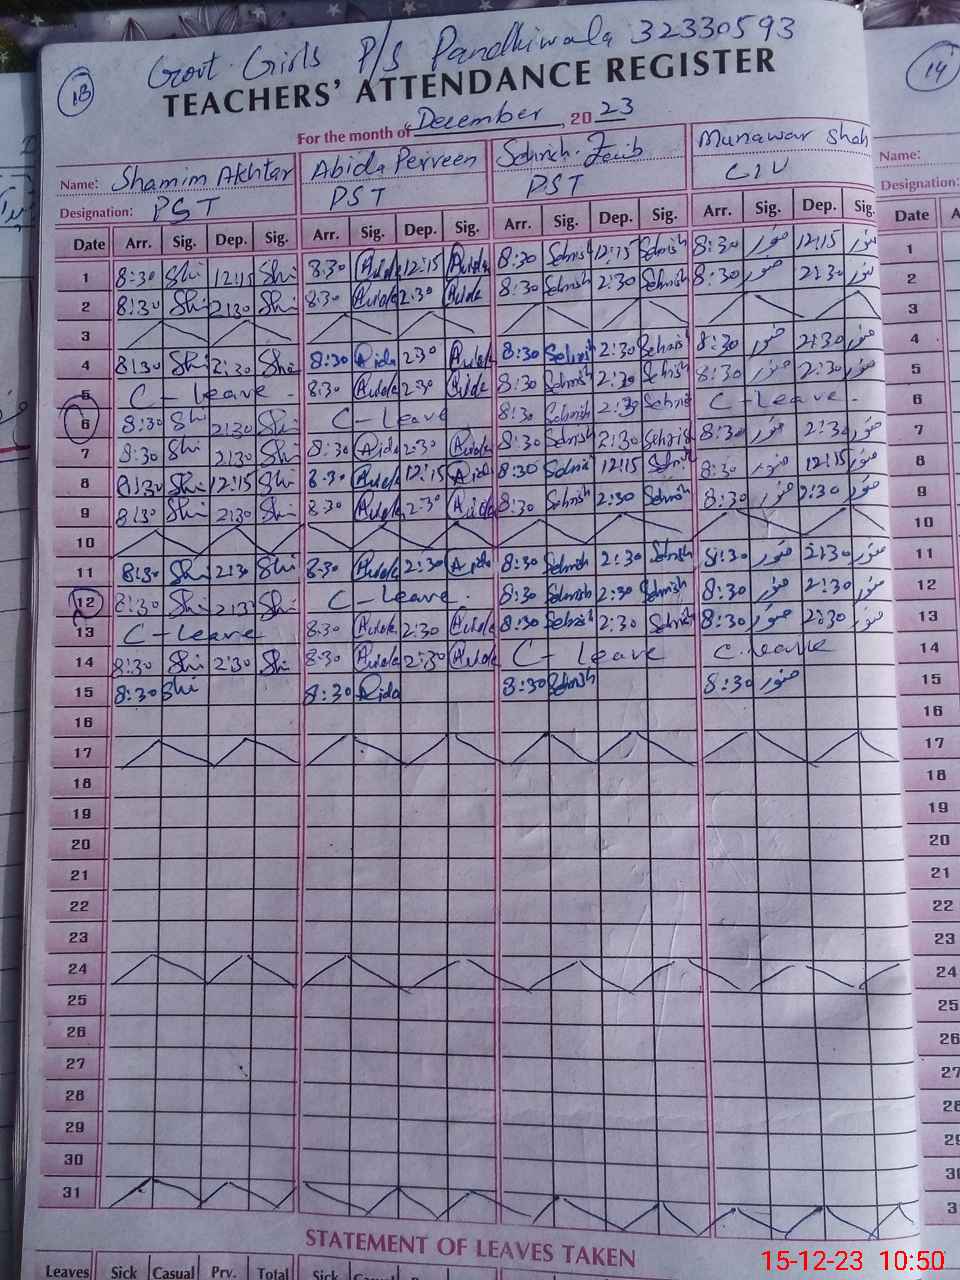 Govt. Girls P/S Pandhiwala 32330593
18
TEACHERS' ATTENDANCE REGISTER
14
For the month of December, 2023
Name: Shamim Akhtar Abida Perveen Sehrish Zaib Munawar Shah Name:
Designation: PST PST PST Designation:
Date Arr. Sig. Dep. Sig. Arr. Sig. Dep. Sig. Arr. Sig. Dep. Sig. Arr. Sig. Dep. Sig. Date
1 8:30 Shi 12:15 Shi 8:30 Abida 12:15 Abida 8:30 Sehrish 12:15 Sehrish 8:30 منور 12:15 منور 1
2 8:30 Shi 2:30 Shi 8:30 Abida 2:30 Abida 8:30 Sehrish 2:30 Sehrish 8:30 منور 2:30 منور 2
3 3
4 8:30 Shi 2:30 Shi 8:30 Abida 2:30 Abida 8:30 Sehrish 2:30 Sehrish 8:30 منور 2:30 منور 4
5 C-leave 8:30 Abida 2:30 Abida 8:30 Sehrish 2:30 Sehrish 8:30 منور 2:30 منور 5
6 8:30 Shi 2:30 Shi C-leave 8:30 Sehrish 2:30 Sehrish C-leave. 6
7 8:30 Shi 2:30 Shi 8:30 Abida 2:30 Abida 8:30 Sehrish 2:30 Sehrish 8:30 منور 2:30 منور 7
8 8:30 Shi 12:15 Shi 8:30 Abida 12:15 Abida 8:30 Sehrish 12:15 Sehrish 8:30 منور 12:15 منور 8
9 8:30 Shi 2:30 Shi 8:30 Abida 2:30 Abida 8:30 Sehrish 2:30 Sehrish 8:30 منور 2:30 منور 9
10 10
11 8:30 Shi 2:30 Shi 8:30 Abida 2:30 Abida 8:30 Sehrish 2:30 Sehrish 8:30 منور 2:30 منور 11
12 8:30 Shi 2:30 Shi C-leave. 8:30 Sehrish 2:30 Sehrish 8:30 منور 2:30 منور 12
13 C-leave 8:30 Abida 2:30 Abida 8:30 Sehrish 2:30 Sehrish 8:30 منور 2:30 منور 13
14 8:30 Shi 2:30 Shi 8:30 Abida 2:30 Abida C-leave C.leave 14
15 8:30 Shi 8:30 Abida 8:30 Sehrish 8:30 منور 15
16 16
17 17
18 18
19 19
20 20
21 21
22 22
23 23
24 24
25 25
26 26
27 27
28 28
29 29
30 30
31 3
STATEMENT OF LEAVES TAKEN
Leaves Sick Casual Prv. Total Sick
15-12-23 10:50